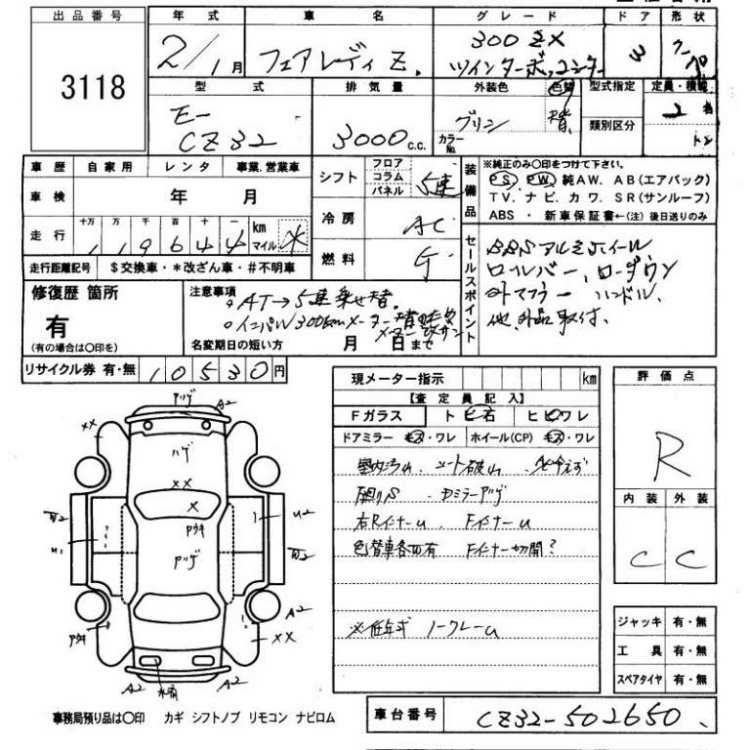 出品番号
3118
年式
2/1月
車名
フェアレディZ.
グレード
300ZX
ツインターボ
ドア
3
形状
クーペ
型式
E-
CZ32
排気量
3000c.c.
外装色
グリン
色替
カラーNo.
型式指定
類別区分
定員・積載
2名
トン
車歴 自家用 レンタ 事業.営業車
車検 年 月
走行 十万 万 千 百 十 一 km マイル
119644 *
走行距離記号 $交換車・*改ざん車・#不明車
シフト フロア コラム パネル 5速
冷房 AC
燃料 G
装備品
※純正のみ○印をつけて下さい。
PS. PW. 純AW. AB(エアバック)
TV. ナビ. カワ. SR(サンルーフ)
ABS ・ 新車保証書←(注) 後日送りのみ
セールスポイント
BBSアルミホイール
ロールバー、ローダウン
外マフラー ハンドル、
他、外品取付、
修復歴 箇所
有
(有の場合は○印を)
注意事項
。AT→5速乗せ替.
。インパル300kmメーター
名変期日の短い方 月 日まで
リサイクル券 有・無 10530円
現メーター指示 km
【査定員記入】
Fガラス トビ石 ヒビワレ
ドアミラー キズ・ワレ ホイール(CP) キズ・ワレ
室内汚レ、シート破レ、
色替車各部有 Fインナー切開?
※低年式 ノークレーム
評価点
R
内装 外装
C C
ジャッキ 有・無
工具 有・無
スペアタイヤ 有・無
A2
XX
ハゲ
XX
X
A2
XX
A2
A2
事務局預り品は○印 カギ シフトノブ リモコン ナビロム
車台番号 CZ32-502650